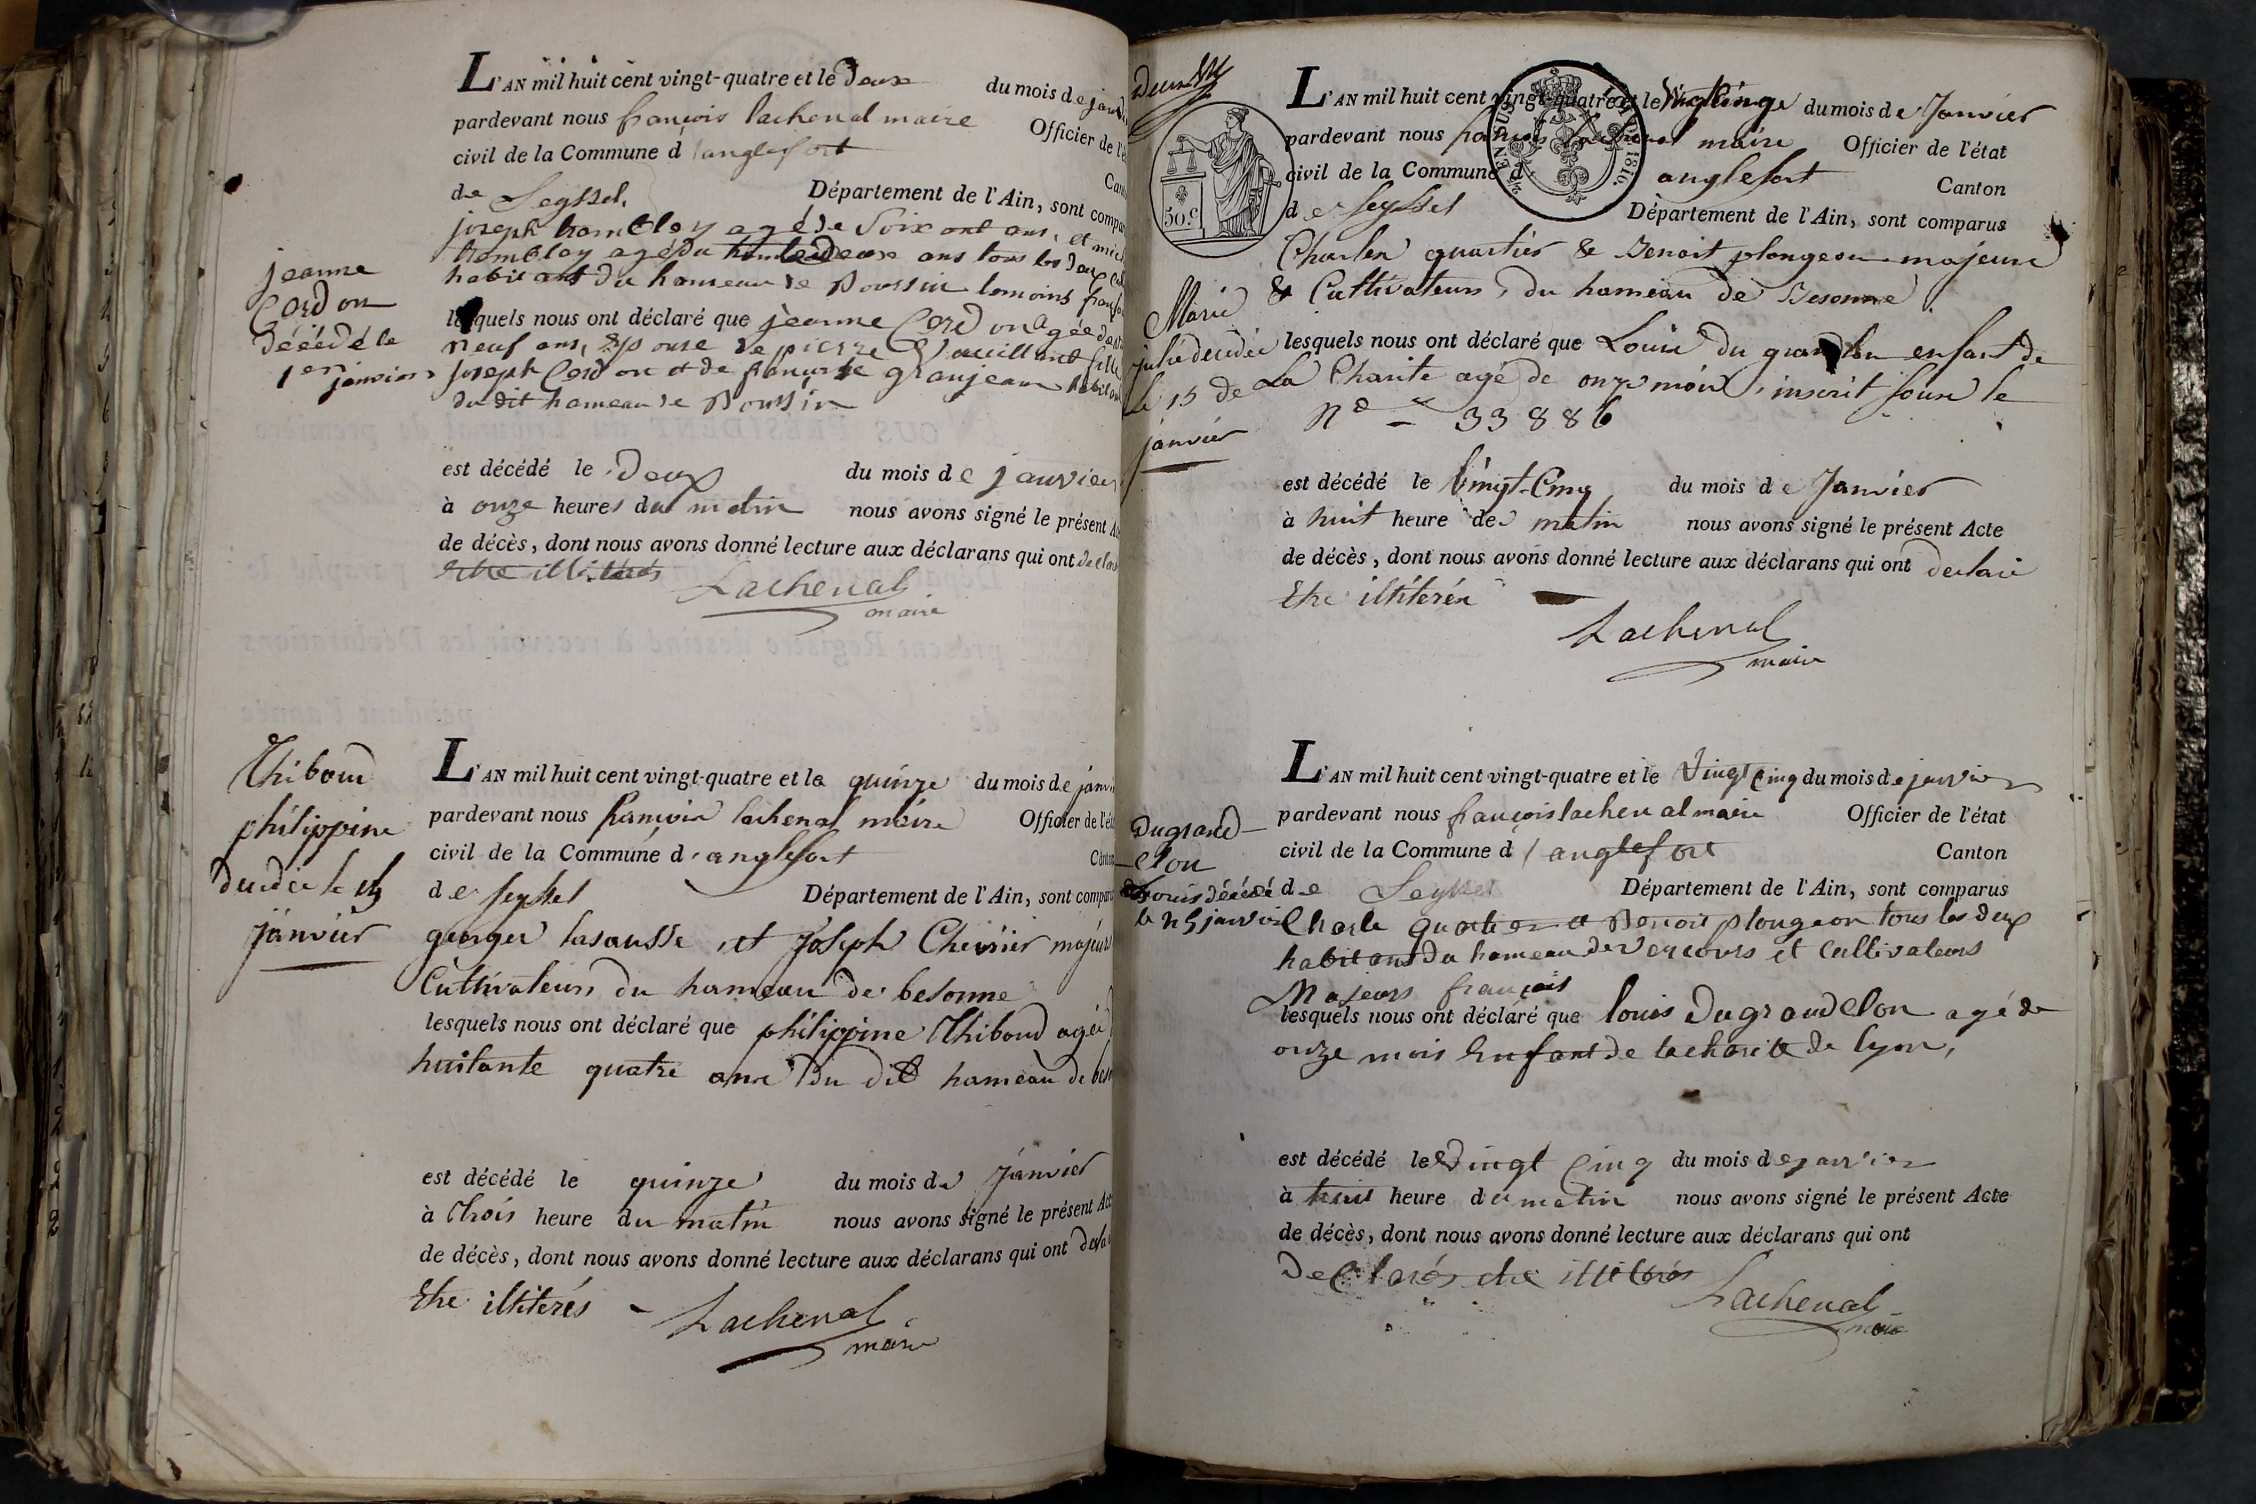 L'AN mil huit cent vingt-quatre et le deux du mois de
pardevant nous françois lachenal maire Officier de
civil de la Commune d'anglefort
de Seyssel, Département de l'Ain, sont
joseph trambley agé de Soix ont ans, et
trambley agé du ans tous les deux
habit ant du hameau de Boursin temoins
lesquels nous ont déclaré que jeanne Cord on agée de
neuf ans, Epouse de pierre fille
joseph Cord on et de granjean
du dit hameau de Boursin
est décédé le deux du mois de janvier
à onze heures du matin nous avons signé le présent
de décès, dont nous avons donné lecture aux déclarans qui ont
etre Lachenal
maire
jeanne
Cord on
décédé le
1er janvier
Thiboud
philippine
decedée le 15
janvier
L'AN mil huit cent vingt-quatre et la quinze du mois de
pardevant nous françois lachenal maire Officier de
civil de la Commune d'anglefort
de Seyssel Département de l'Ain, sont
georges lasausse et Joseph Chevrier
Cultivateurs du hameau de besonne
lesquels nous ont déclaré que philippine Thiboud agée
huitante quatre ans du dit hameau de
est décédé le quinze du mois de Janvier
à trois heure du matin nous avons signé le présent
de décès, dont nous avons donné lecture aux déclarans qui ont
Etre illiterés Lachenal
maire
50.C
L'AN mil huit cent vingt-quatre et le du mois de Janvier
pardevant nous maire Officier de l'état
civil de la Commune d' anglefort Canton
de Seyssel Département de l'Ain, sont comparus
Charles quartier & Benoit plongeon majeurs
& Cultivateurs, du hameau de Besonne
lesquels nous ont déclaré que Louis du grandclon enfant de
La Charite agé de onze mois, inscrit sous le
N° - 33886
est décédé le Vingt-Cinq du mois de Janvier
à huit heure de matin nous avons signé le présent Acte
de décès, dont nous avons donné lecture aux déclarans qui ont declaré
Etre illiterés
Lachenal
maire
Marie
julie decedée
le 15 de
janvier
Dugrand
clon
Louis décédé
le 25 janvier
L'AN mil huit cent vingt-quatre et le Vingt cinq du mois de janvier
pardevant nous françois lachenal maire Officier de l'état
civil de la Commune d'anglefort Canton
de Seyssel Département de l'Ain, sont comparus
Charle quartier et Benoit plongeon tous les deux
habit ans du hameau de Vercours et Cultivateurs
Majeurs français
lesquels nous ont déclaré que louis Dugrandclon agé de
onze mois Enfant de la charité de lyon,
est décédé le Vingt Cinq du mois de janvier
à huit heure du matin nous avons signé le présent Acte
de décès, dont nous avons donné lecture aux déclarans qui ont
Déclarés etre illiterés Lachenal
maire